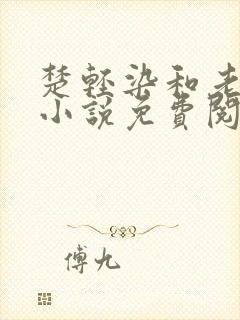 楚轻染和老
小說免費閱
傅九